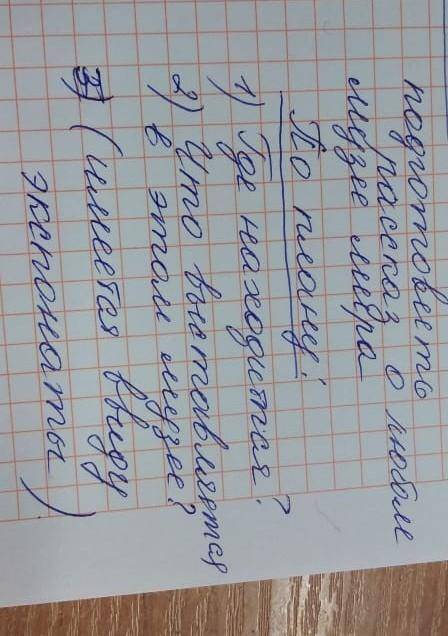 подготовить
рассказ о любом
музее мира
По плану:
1) Где находится?
2) Что выставляется
в этом музее?
(имеется ввиду
экспонаты)